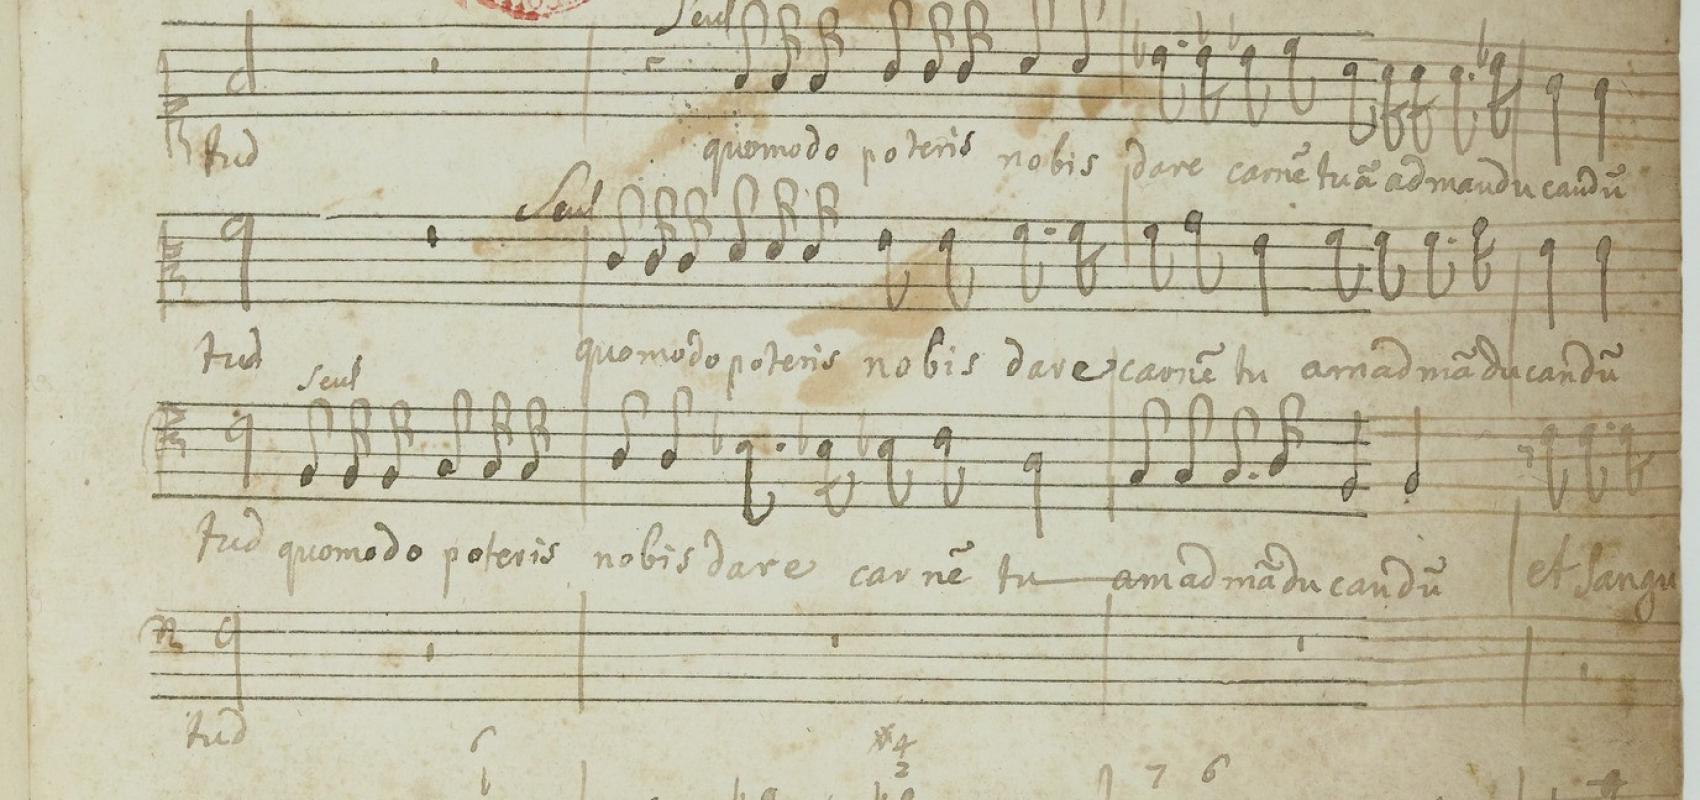 Seul
tud quomodo poteris nobis dare carnē tuā admanducandū
Seul
tud quomodo poteris nobis dare carnē tu amadmāducandū
Seul
tud quomodo poteris nobis dare carnē tu amadmāducandū et sangu
tud
6 4 7 6
2